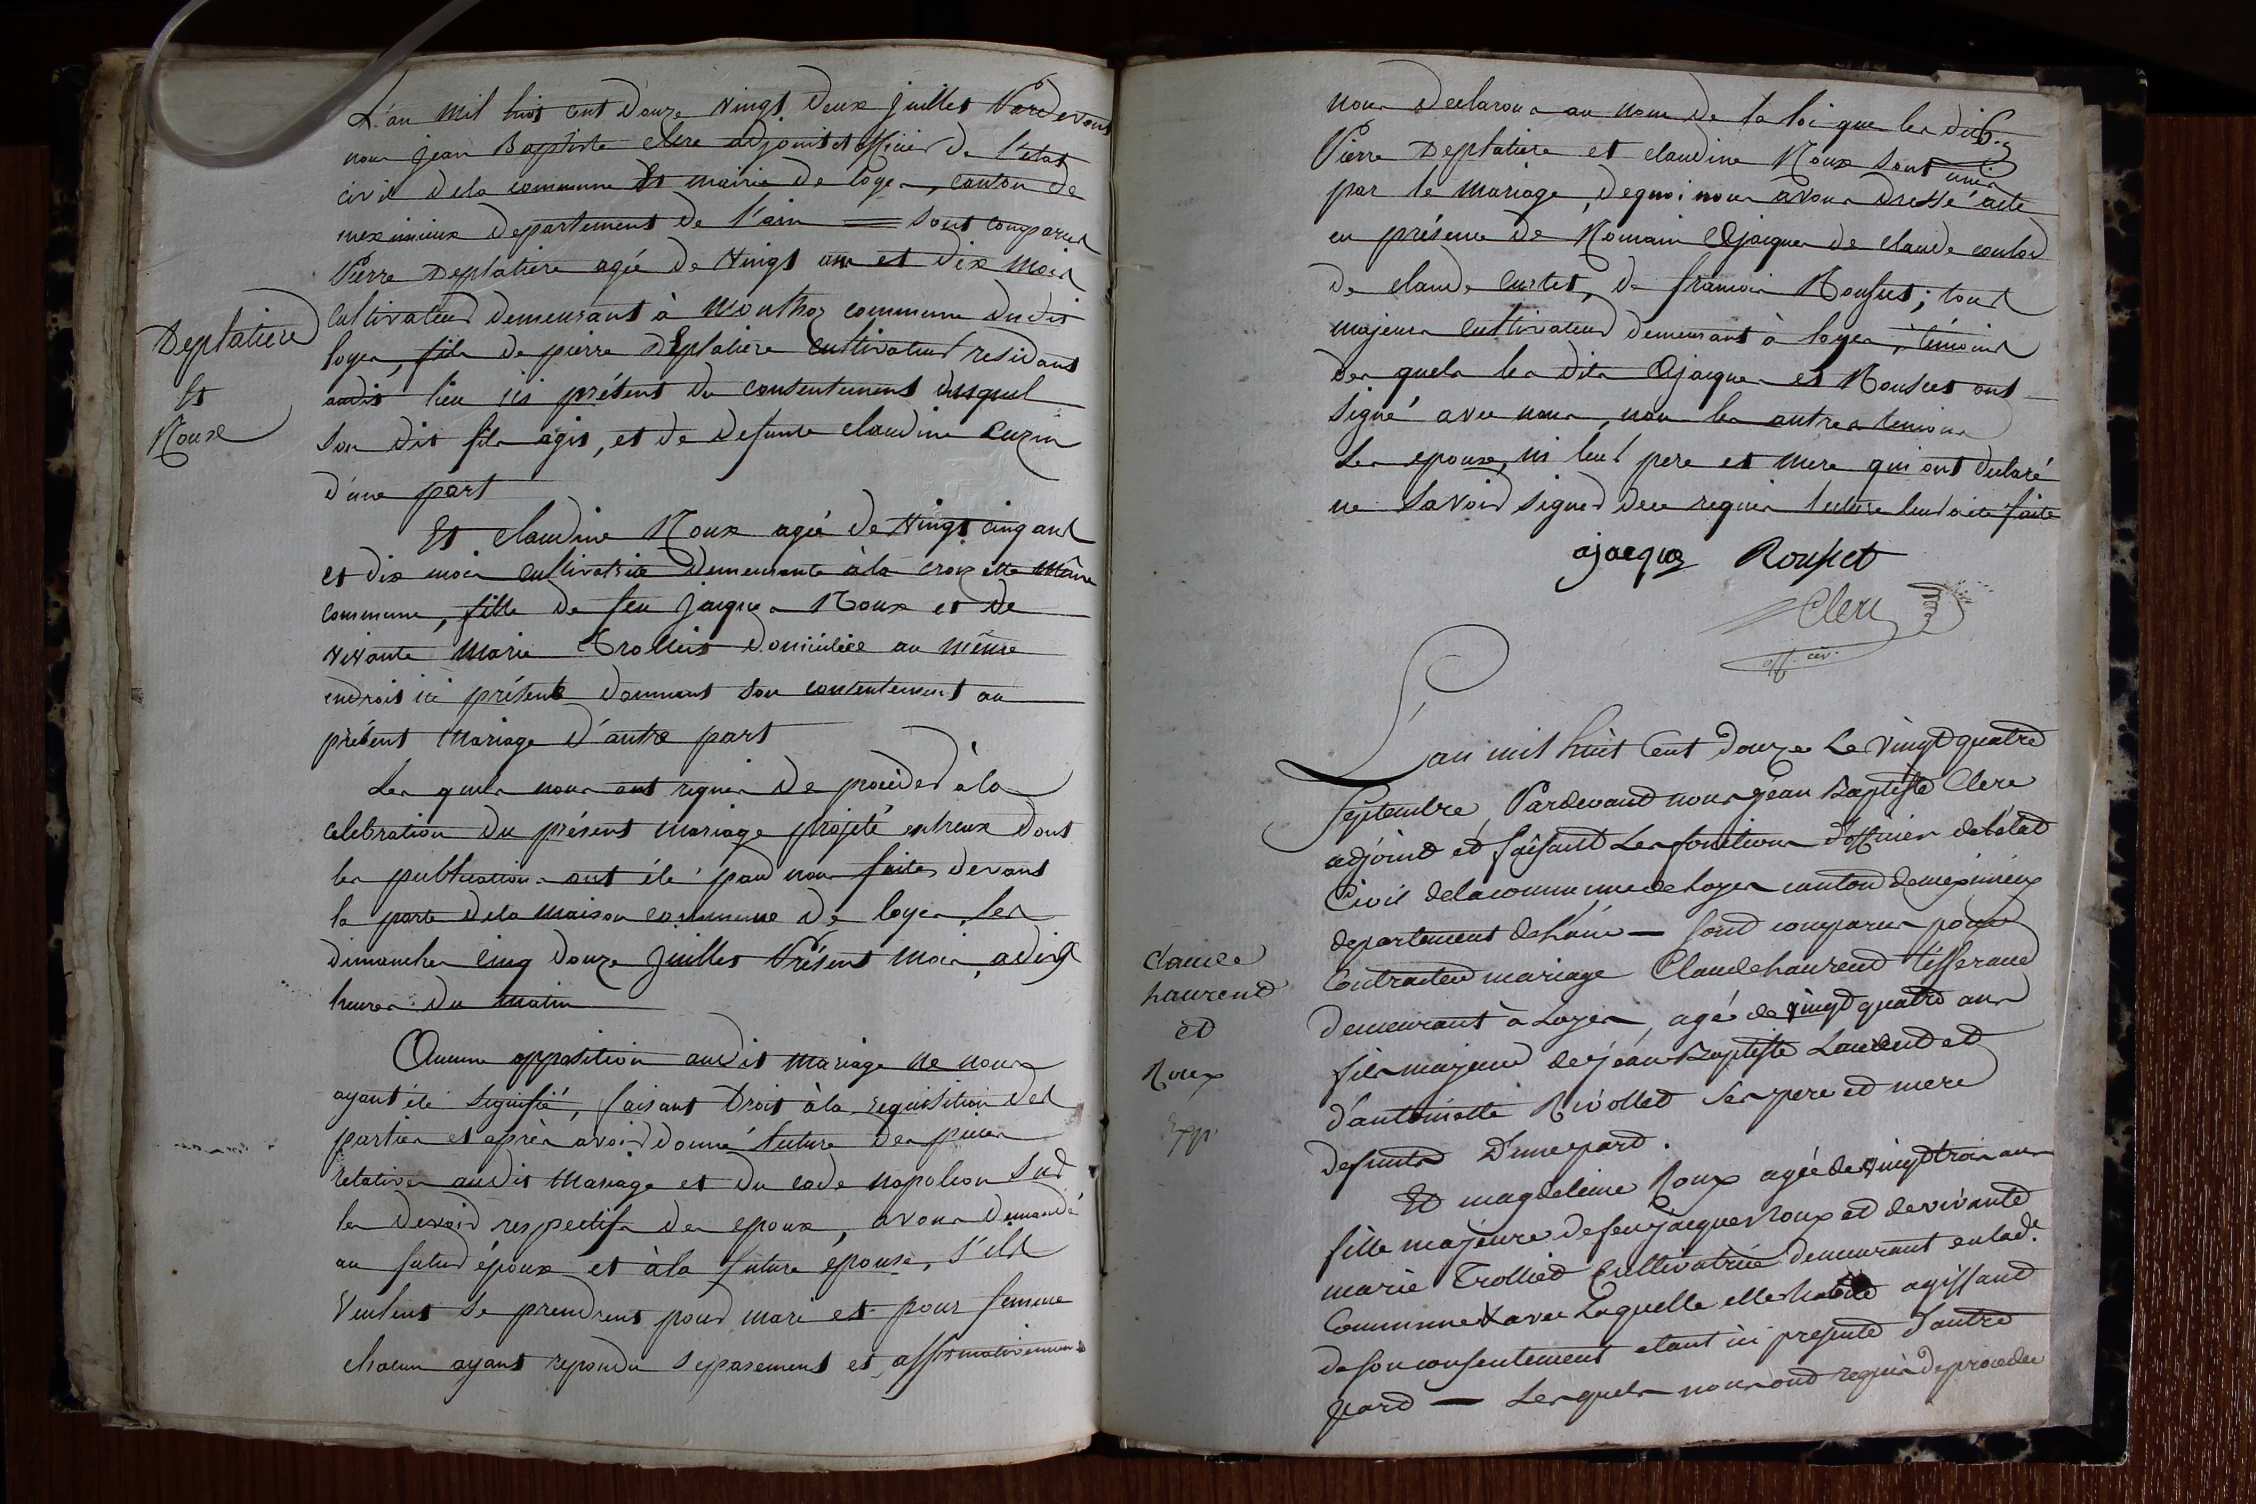 L'an mil huit cent douze vingt deux juillet Pardevant
nous jean Baptiste clerc adjoint et officier de l'état
civil dela commune Et mairie de loyes, canton de
meximieux departement de l'ain = sont comparus
Pierre Deplatiere agée de vingt ans et dix mois
cultivateur demeurant à monthoz commune dudit
loyes, fils de pierre DEplatiere cultivateur residant
audit lieu ici présent du consentement duquel
son dit fils agit, et de defunte claudine Cuzin
d'une part
Deplatiere
Et
Roux
Et claudine Roux agée de vingt cinq ans
et dix mois cultivatrice demeurante à la croizette même
commune, fille de feu jacques Roux et de
vivante marie Trolliet domiciliée au même
endroit ici présente donnant son consentement au
présent mariage d'autre part
Les quels nous ont requis de procéder à la
celebration du présent mariage projeté entreux dont
les publications ont été par nous faites devant
la porte dela maison commune de loyes, les
dimanches cinq douze juillet Présent mois, a dix
heures du matin
Aucune opposition audit mariage ne nous
ayant été signifié, faisant Droit à la requisition des
parties et après avoir donné lecture des pieces
relatives audit mariage et du code napoleon sur
les devoirs respectifs des epoux, avons demandé
au futur époux et à la future épouse, s'ils
veulent se prendrent pour mari et pour femme
chacun ayant repondu separement et affirmativement
6.
nous declarons au nom de la loi que les dits
Pierre Deplatiere et claudine Roux sont unis
par le mariage, dequoi nous avons dressé acte
en présence de Romain Ajacques de claude coulod
de claude curtet, de francois Rousset; tous
majeurs cultivateurs demeurant à loyes, témoins
des quels les dits Ajacques et Rousset ont
signé avec nous, non les autres temoins
Les epoux, ni leur pere et mere qui ont declaré
ne savoir signer dece requis lecture leur a été faite
ajacques Rousset
Clerc
off. civ.
L'an mil huit Cent douze Le vingt quatre
Septembre, Pardevant nous jean Baptiste Clerc
adjoint et faisant Les fonctions d'officier de l'état
Civil delacommune de Loyes canton demeximieux
departement de L'ain — sont comparus pour
Contracter mariage Claude Laurent tisserand
demeurant à Loyes, agé de vingt quatre ans
fils majeur de jean Baptiste Laurent et
d'antoinette Rivollet ses pere et mere
defunts D'une part.
Claude
Laurent
et
Roux
Exp.
Et magdeleine Roux agée de vingt trois ans
fille majeure de feu jacques Roux et de vivante
marie Trolliet Cultivatrice demeurant en lad.e
Commune & avec Laquelle elle habite agissant
de son consentement etant ici presente d'autre
part — Lesquels nous ont requis de proceder